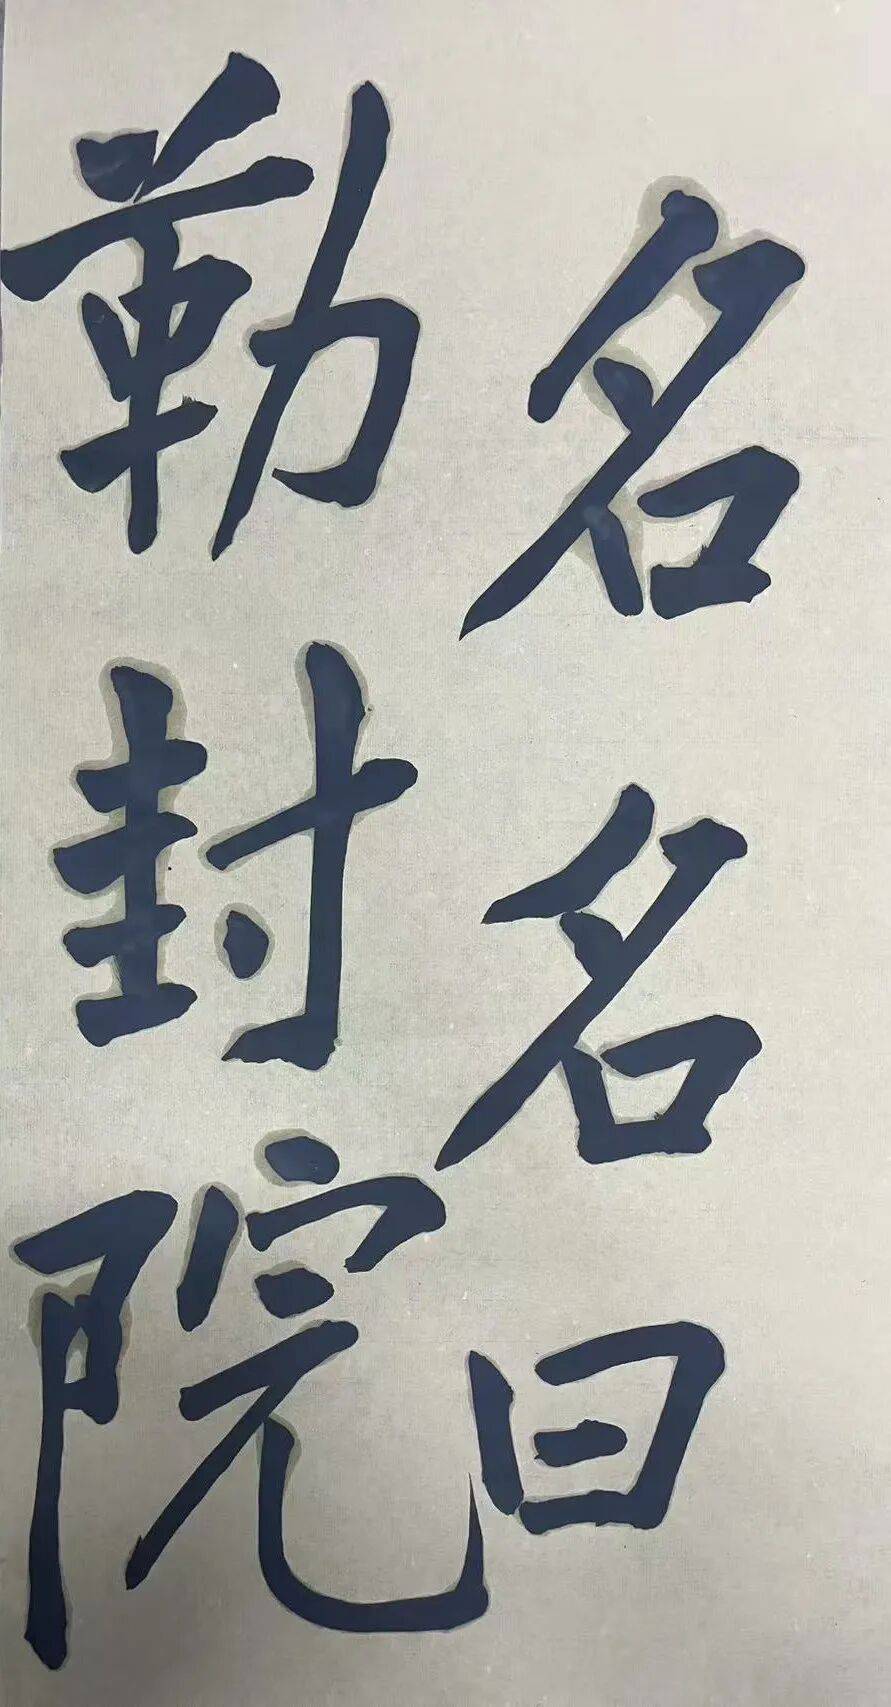 名名曰
勒封院